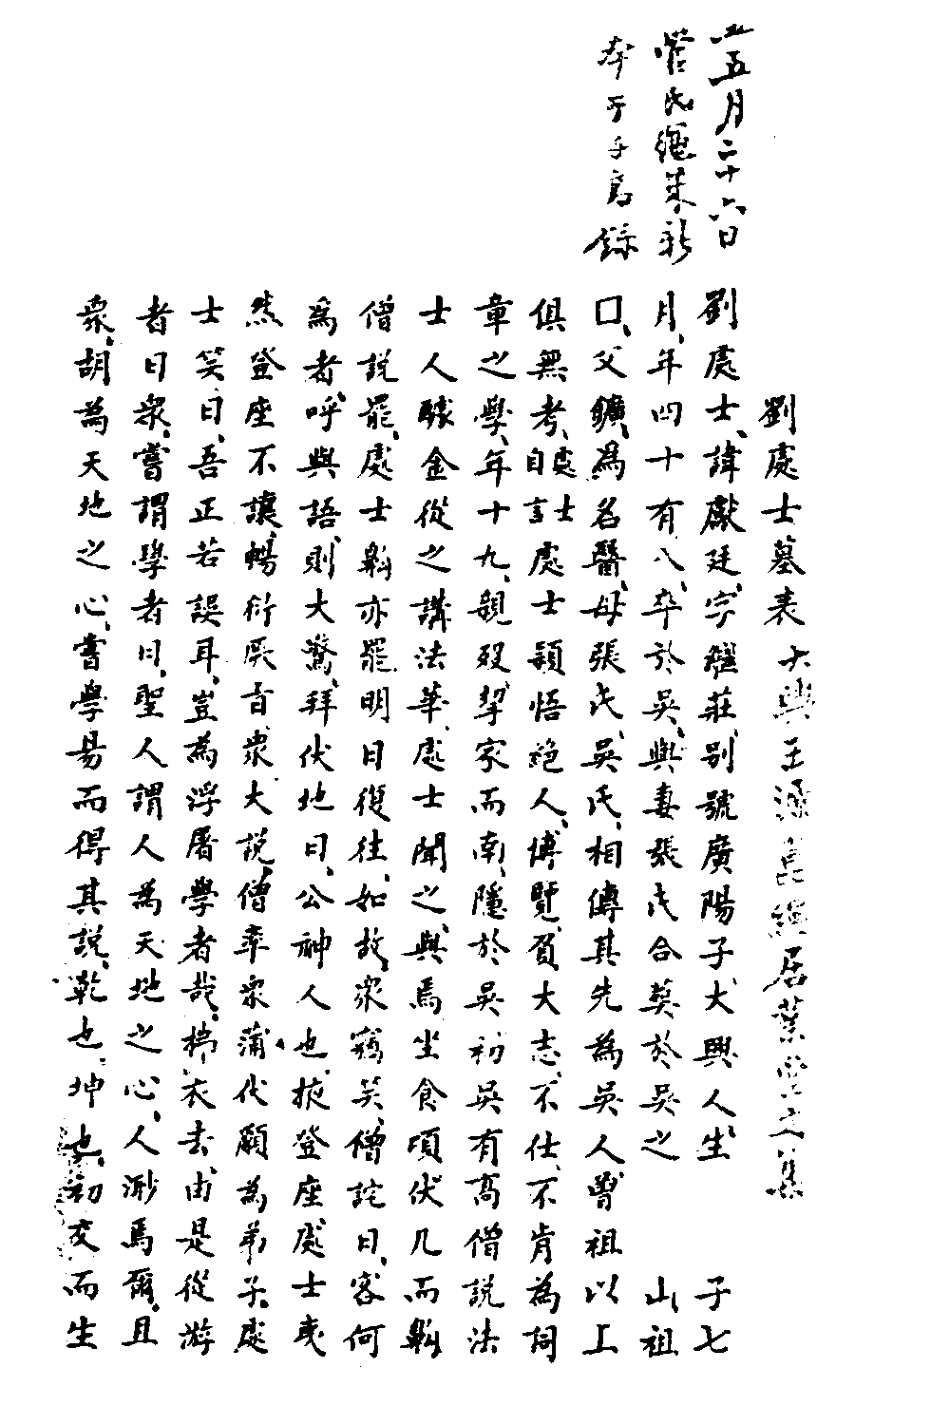 五月二十六日
管氏
本 于 寫 錄
劉處士墓表 大興王源崑繩居業堂文集
劉處士、諱獻廷、字繼莊、別號廣陽子、大興人、生 子七
月、年四十有八、卒於吳、與妻張氏合葬於吳之 山、祖
口、父鑛、為名醫、母張氏、吳氏、相傳其先為吳人、曾祖以上
俱無考、處士自言處士穎悟絕人、博覽、負大志、不仕、不肯為詞
章之學、年十九、親歿、挈家而南、隱於吳、初吳有高僧說法
士人醵金從之講法華、處士聞之、與焉、坐食頃、伏几而鼾
僧說罷、處士鼾亦罷、明日復往、如故、眾竊笑、僧詫曰、客何
為者、呼與語、則大驚、拜伏地曰、公神人也、掖登座、處士夷
然登座不讓、暢衍厥旨、眾大說、僧率眾蒲伏願為弟子、處
士笑曰、吾正若誤耳、豈為浮屠學者哉、拂衣去、由是從游
者日眾、嘗謂學者曰、聖人謂人為天地之心、人渺焉爾、且
眾、胡為天地之心、嘗學易而得其說、乾也、坤也、初交而生